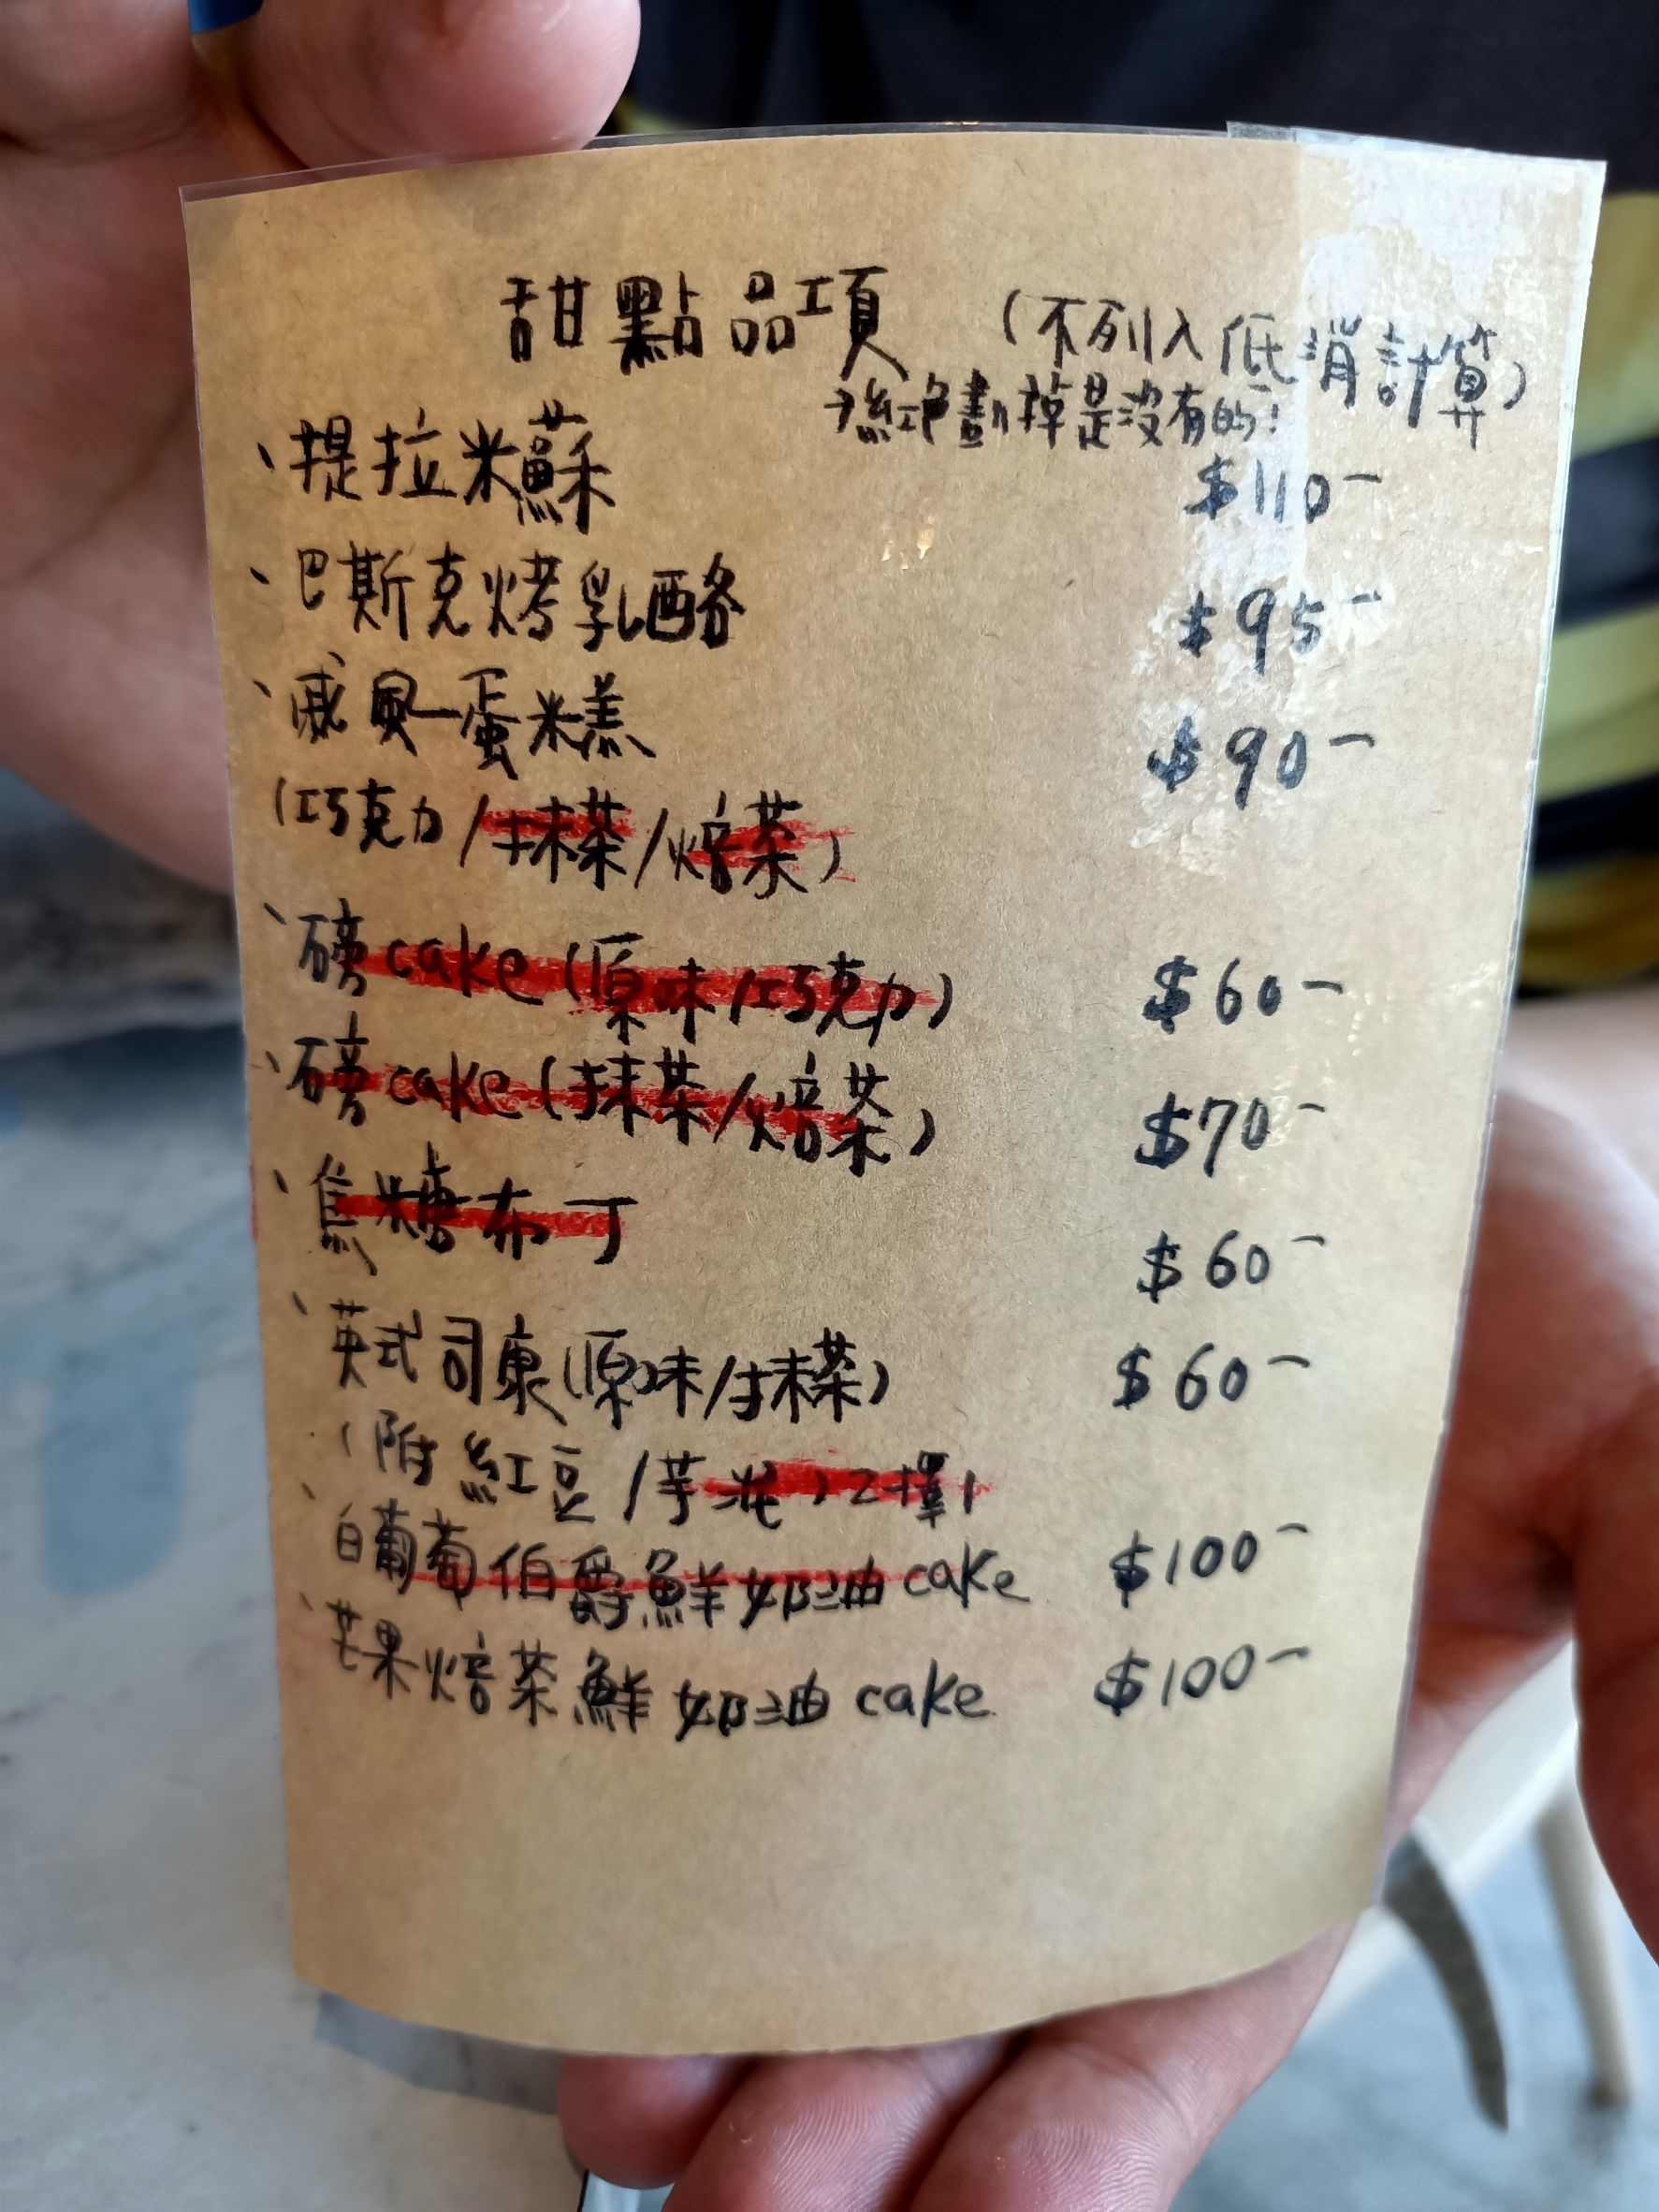 甜點品項 (不列入低消計算)
紅色劃掉是沒有的!
、提拉米蘇 $110-
、巴斯克烤乳酪 $95-
、戚風蛋糕 $90-
(巧克力/抹茶/焙茶)
、磅cake(原味/巧克力) $60-
、磅cake(抹茶/焙茶) $70-
、焦糖布丁 $60-
、英式司康(原味/抹茶) $60-
(附紅豆/芋泥)2擇1
、白葡萄伯爵鮮奶油cake $100-
、芒果焙茶鮮奶油cake $100-